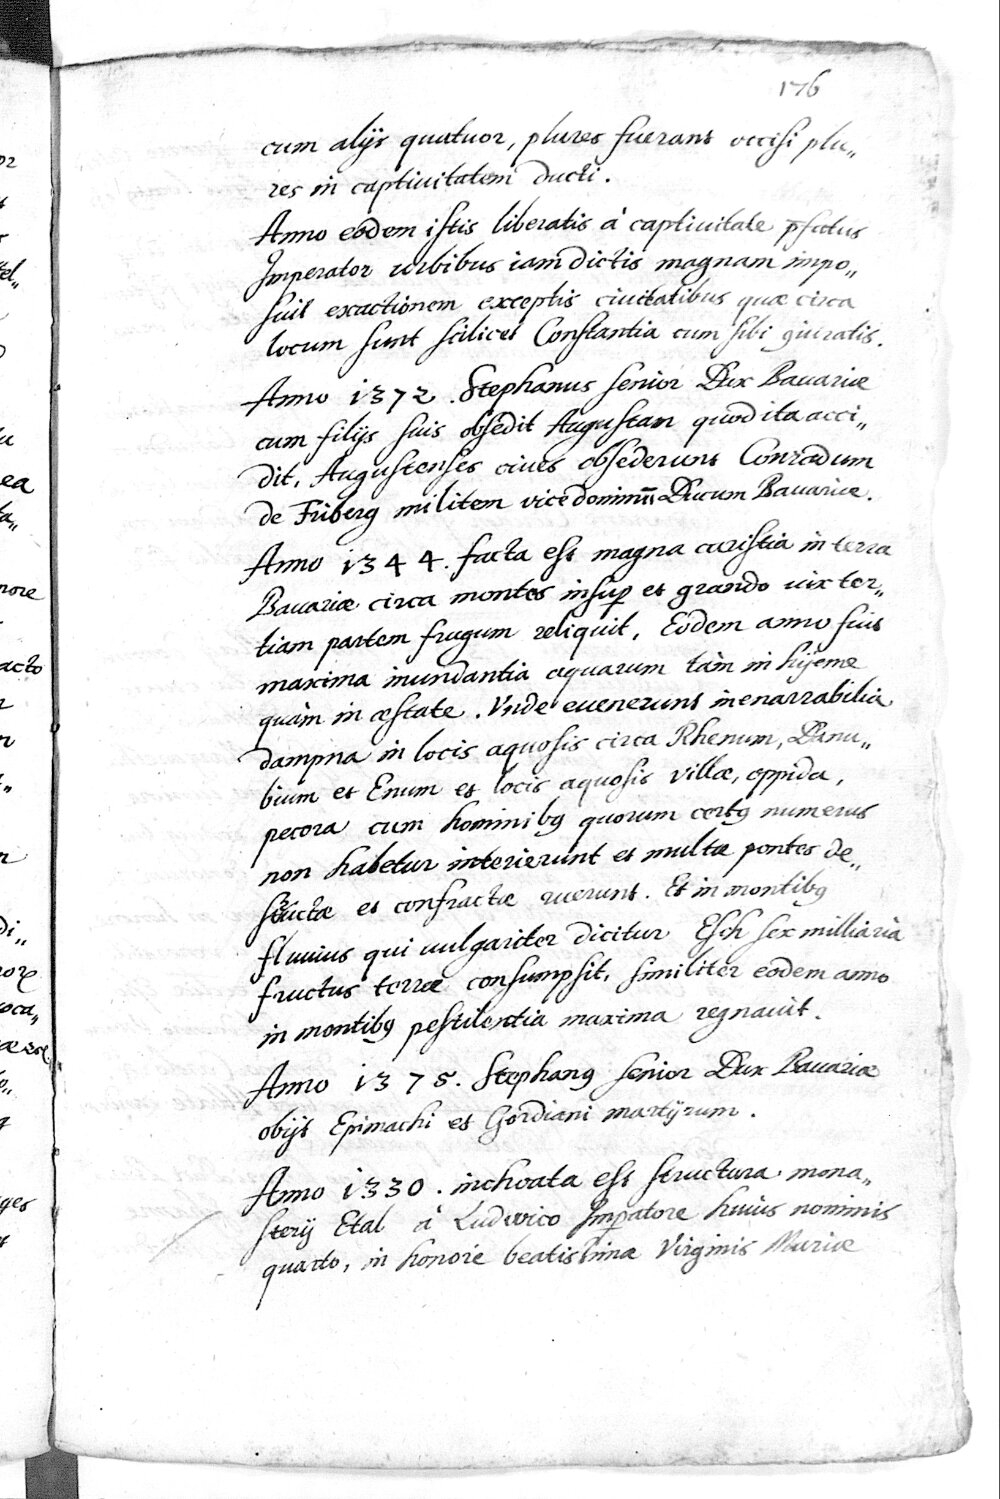 176
cum alijs quatuor, plures fuerant occisi plu„
res in captiuitatem ducti.
Anno eodem istis liberatis à captiuitate pfatus
Imperator urbibus iam dictis magnam impo„
suit exactionem exceptis ciuitatibus quæ circa
locum sunt scilicet Constantia cum sibi giuratis.
Anno 1372. Stephanus senior Dux Bauariæ
cum filijs suis obsedit Augustam quod ita acci„
dit, Augustenses ciues obsederunt Conradum
de Friberg militem vicedominũ Ducum Bauariæ.
Anno 1344. facta est magna caristia in terra
Bauariæ circa montes insup et grando uix ter„
tiam partem frugum reliquit, Eodem anno fuit
maxima inundantia aquarum tàm in hijeme
quàm in æstate. Vnde euenerunt inenarrabilia
dampna in locis aquosis circa Rhenum, Danu„
bium et Enum et locis aquosis villæ, oppida,
pecora cum hominibꝯ quorum certꝯ numerus
non habetur interierunt et multæ pontes de„
structæ et confractæ ruerunt. Et in montibꝯ
fluuius qui uulgariter dicitur Esch sex milliaria
fructus terræ consumpsit, similiter eodem anno
in montibꝯ pestilentia maxima regnauit.
Anno 1375. Stephanꝯ senior Dux Bauariæ
obijt Epimachi et Gordiani martijrum.
Anno 1330. inchoata est structura mona„
sterij Etal à Ludouico Impatore huius nominis
quarto, in honore beatissimæ Virginis Mariæ